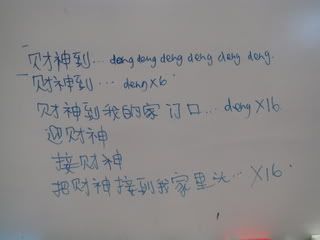 财神到... deng deng deng deng deng deng.
财神到... deng×6
财神到我的家门口... deng×16
迎财神
接财神
把财神接到我家里头... ×16